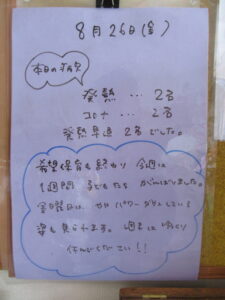 8月26日(金)
本日の病欠
発熱 … 2名
コロナ … 2名
発熱早退 2名でした。
希望保育も終わり 今週は
1週間 子どもたち がんばりました。
金曜日は、 パワーダウンしている
姿も見られます。 週末は ゆっくり
休んでください!!